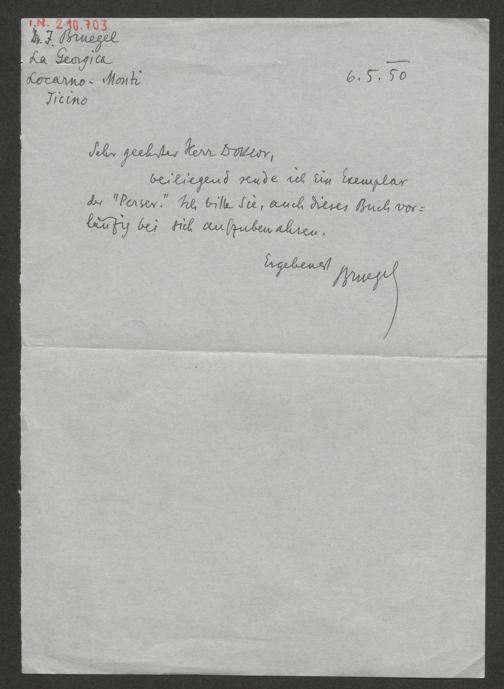 I.N. 210.703
Dr. F. Bruegel
La Georgica
Locarno-Monti
Ticino
6.5.50
Sehr geehrter Herr Doktor,
beiliegend sende ich ein Exemplar
der "Perser." Ich bitte Sie, auch dieses Buch vor=
läufig bei sich aufzubewahren.
Ergebenst Bruegel